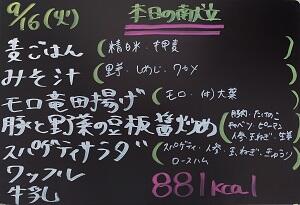 9/16(火) 本日の献立
麦ごはん(精白米・押麦)
みそ汁(豆腐・しめじ・ワカメ)
モロ竜田揚げ(モロ・(付)大葉)
豚と野菜の豆板醤炒め(豚肉・たけのこ
キャベツ・ピーマン
人参・玉ねぎ・生姜)
スパゲティサラダ(スパゲティ・人参・玉ねぎ・きゅうり
ロースハム)
ワッフル
牛乳
881kcal